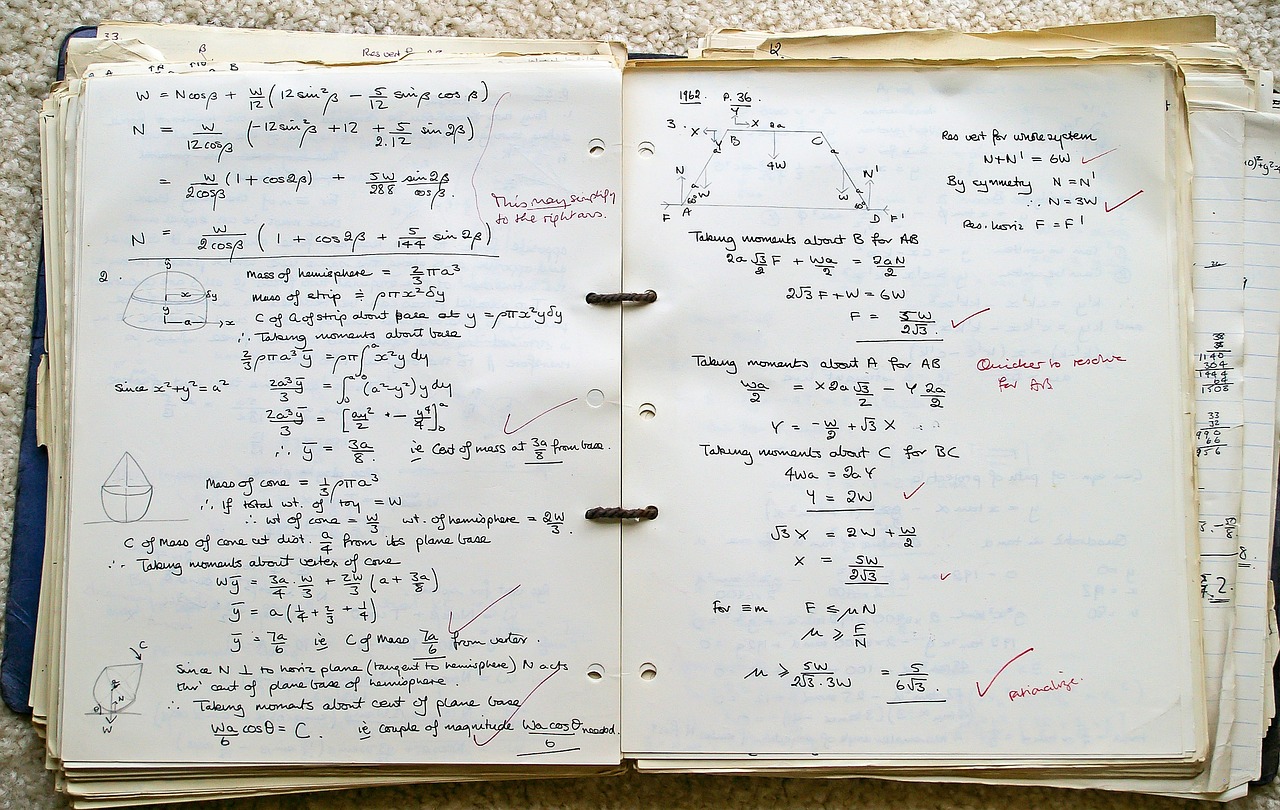 33.
β
Res vert
B
W = Ncosβ + W/12 (12sin²β − 5/12 sinβ cosβ)
N = W/12cosβ (−12sin²β + 12 + 5/2.12 sin2β)
= W/2cosβ (1 + cos2β) + 5W/288 sin2β/cosβ.
This may simplify
to the right ans.
N = W/2cosβ (1 + cos2β + 5/144 sin2β)
2.
y
x
δy
y
a
x
Mass of hemisphere = 2/3 πa³
Mass of strip ≑ ρπx²δy
C of G of strip about base at y = ρπx²yδy
∴ Taking moments about base
2/3 ρπa³ȳ = ρπ∫₀ᵃ x²y dy
Since x²+y²=a² 2a³ȳ/3 = ∫₀ᵃ (a²−y²)y dy
2a³ȳ/3 = [ay²/2 − y⁴/4]₀ᵃ
∴ ȳ = 3a/8 ie Cent of mass at 3a/8 from base.
Mass of cone = 1/3 ρπa³
∴ If total wt. of toy = W
∴ wt of cone = W/3 wt. of hemisphere = 2W/3.
C of Mass of cone at dist. a/4 from its plane base
∴ Taking moments about vertex of cone
Wȳ = 3a/4 . W/3 + 2W/3 (a + 3a/8)
ȳ = a(1/4 + 2/3 + 1/4)
ȳ = 7a/6 ie C of Mass 7a/6 from vertex.
C
N
W
Since N ⊥ to horiz plane (tangent to hemisphere) N acts
thro' cent of plane base of hemisphere.
∴ Taking moments about cent of plane base
Wa/6 cosθ = C. ie couple of magnitude Wa cosθ/6 needed.
62.
1962. P. 36.
3.
Y
X
2a
X
B
C
Y
a
4W
a
N
a
W
W
a
N'
60°
60°
F
A
D
F'
Res vert for whole system
N+N' = 6W
By symmetry N = N'
∴ N = 3W
Res. horiz F = F'
Taking moments about B for AB
2a √3/2 F + Wa/2 = 2aN/2
2√3 F + W = 6W
F = 5W/2√3.
Taking moments about A for AB
Quicker to resolve
for AB
Wa/2 = X 2a √3/2 − Y 2a/2
Y = −W/2 + √3 X
Taking moments about C for BC
4Wa = 2aY
Y = 2W
√3 X = 2W + W/2
X = 5W/2√3
For ≡m F ≤ μN
μ ≥ F/N
μ ≥ 5W/2√3.3W = 5/6√3.
rationalize.
38
38
1140
304
1444
64
1508
33
32
990
66
956
2.